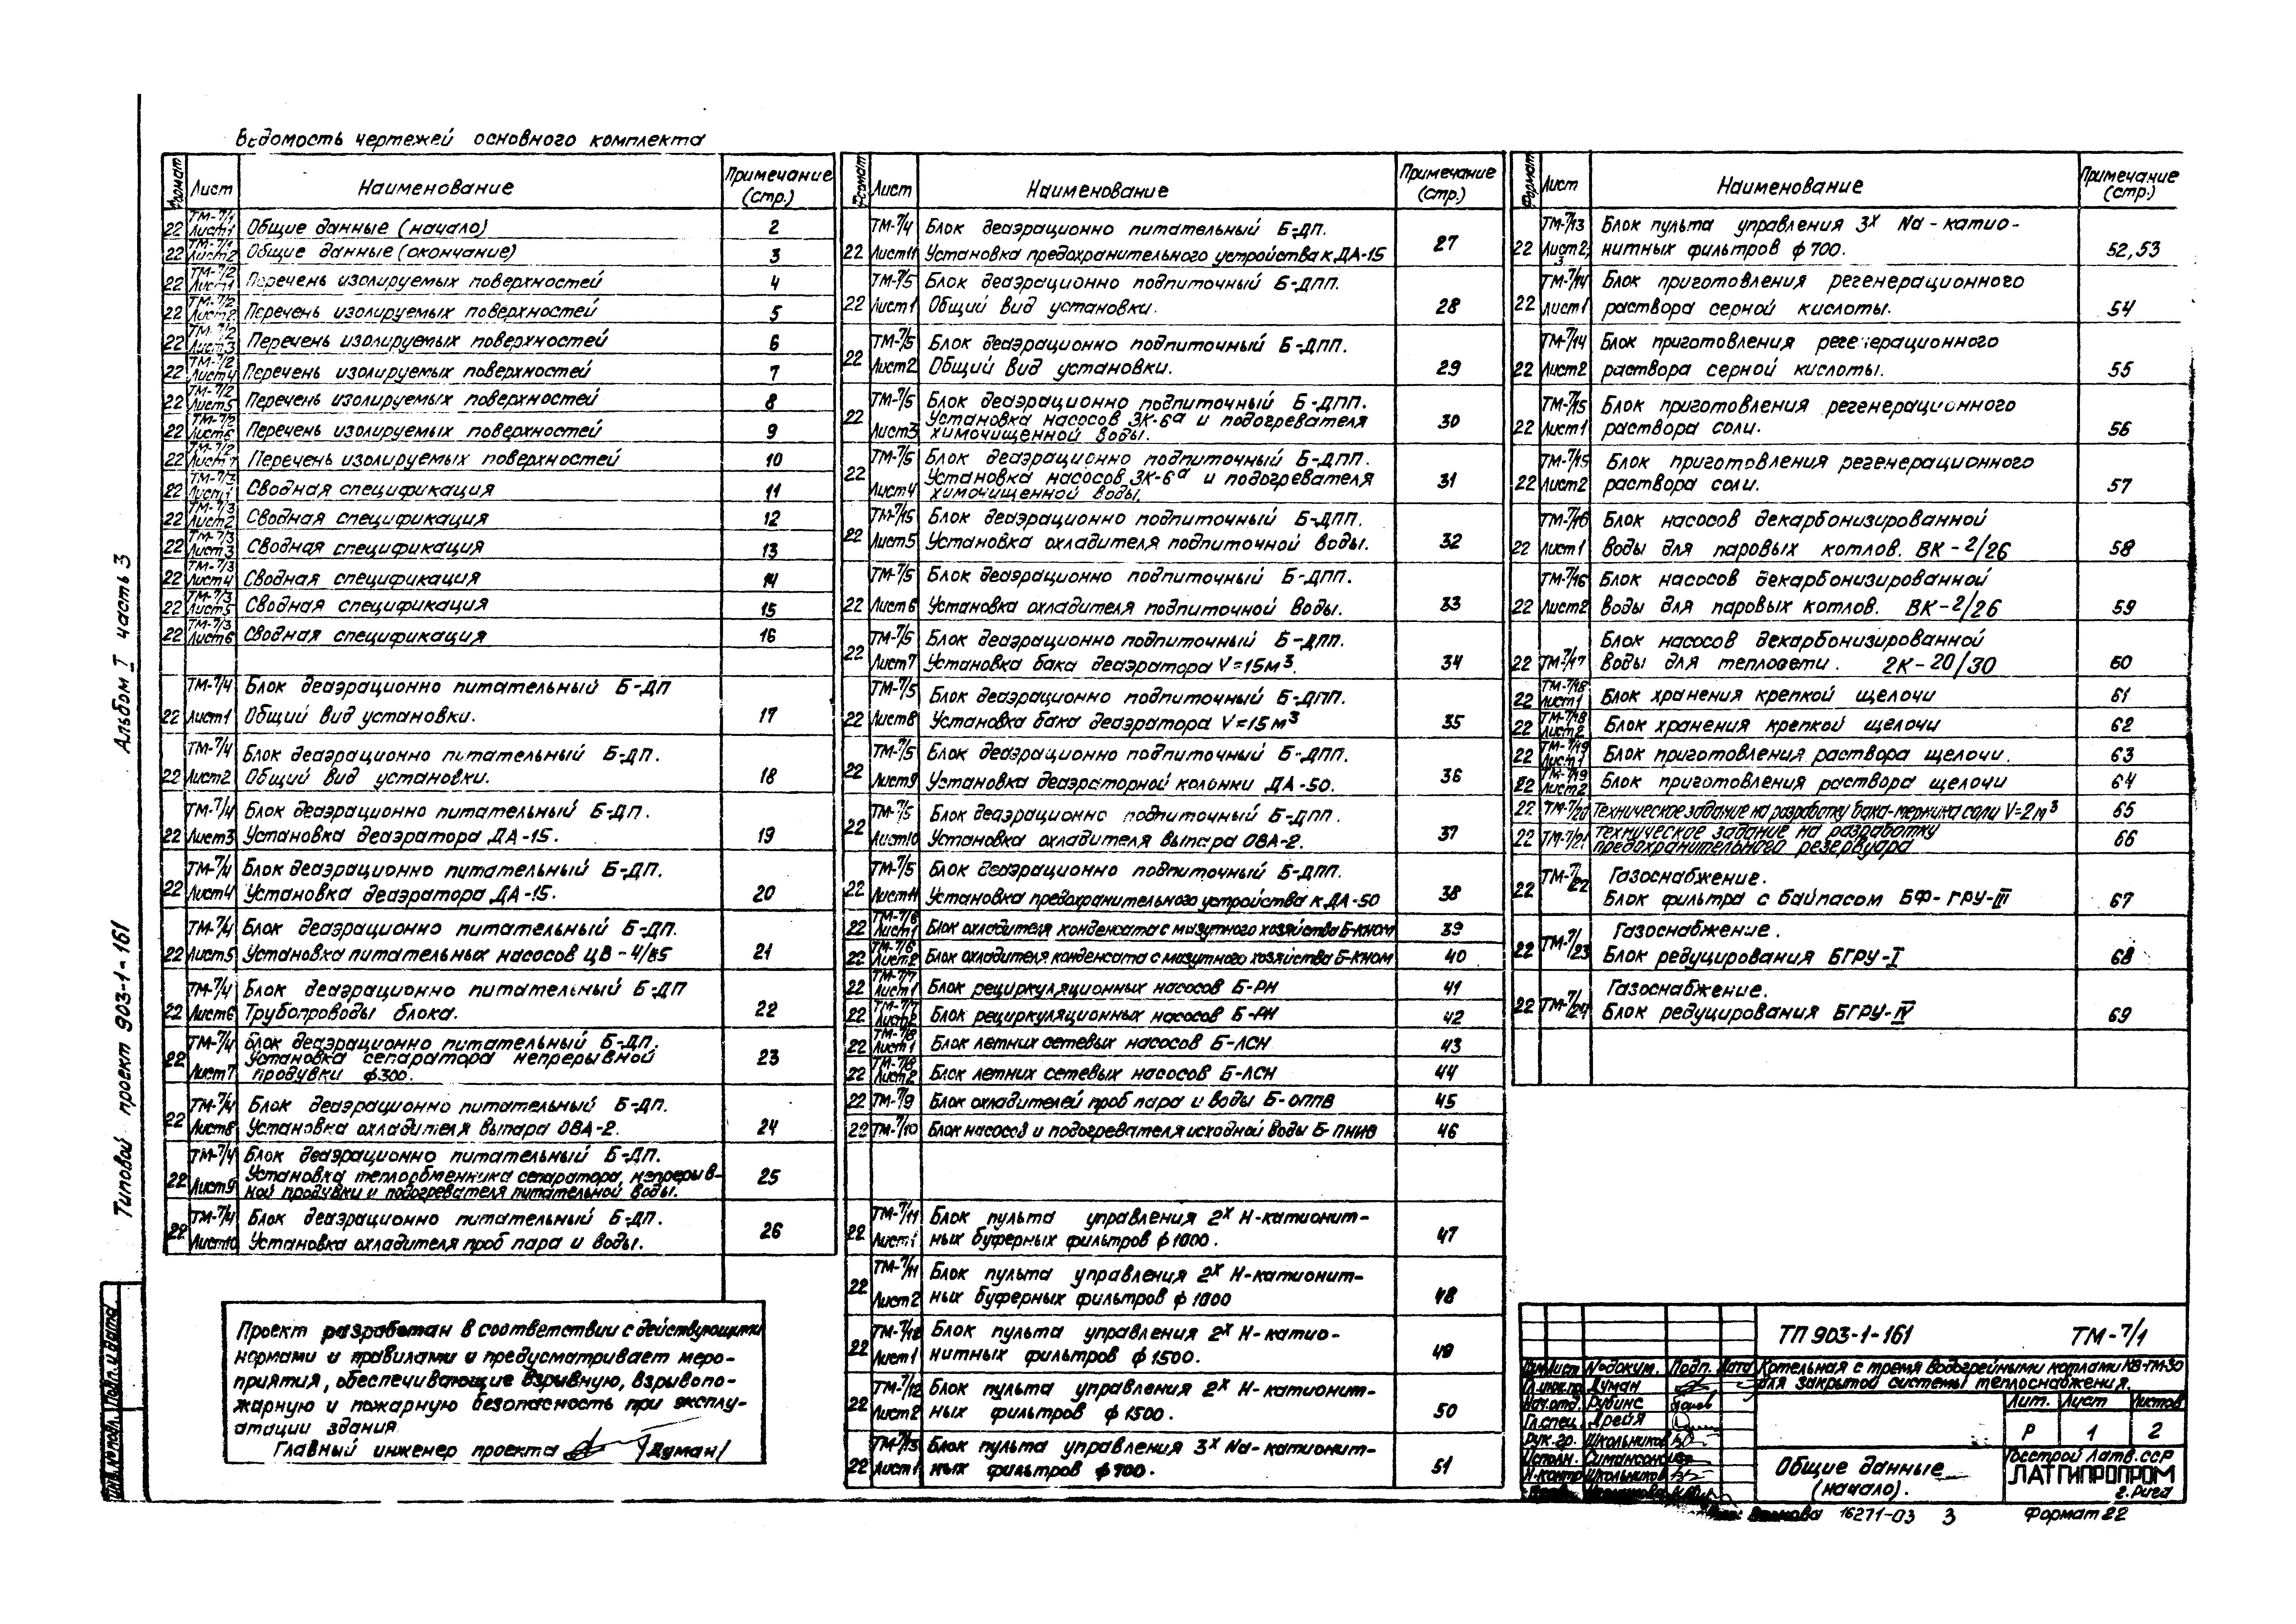 Ведомость чертежей основного комплекта
Формат Лист Наименование Примечание (стр.)
22 ТМ-7/1 Лист1 Общие данные (начало) 2
22 ТМ-7/1 Лист2 Общие данные (окончание) 3
22 ТМ-7/2 Лист1 Перечень изолируемых поверхностей 4
22 ТМ-7/2 Лист2 Перечень изолируемых поверхностей 5
22 ТМ-7/2 Лист3 Перечень изолируемых поверхностей 6
22 ТМ-7/2 Лист4 Перечень изолируемых поверхностей 7
22 ТМ-7/2 Лист5 Перечень изолируемых поверхностей 8
22 ТМ-7/2 Лист6 Перечень изолируемых поверхностей 9
22 ТМ-7/2 Лист7 Перечень изолируемых поверхностей 10
22 ТМ-7/3 Лист1 Сводная спецификация 11
22 ТМ-7/3 Лист2 Сводная спецификация 12
22 ТМ-7/3 Лист3 Сводная спецификация 13
22 ТМ-7/3 Лист4 Сводная спецификация 14
22 ТМ-7/3 Лист5 Сводная спецификация 15
22 ТМ-7/3 Лист6 Сводная спецификация 16
ТМ-7/4 Блок деаэрационно питательный Б-ДП
22 Лист1 Общий вид установки. 17
ТМ-7/4 Блок деаэрационно питательный Б-ДП.
22 Лист2 Общий вид установки. 18
ТМ-7/4 Блок деаэрационно питательный Б-ДП.
22 Лист3 Установка деаэратора ДА-15. 19
ТМ-7/4 Блок деаэрационно питательный Б-ДП.
22 Лист4 Установка деаэратора ДА-15. 20
ТМ-7/4 Блок деаэрационно питательный Б-ДП.
22 Лист5 Установка питательных насосов ЦВ-4/85 21
ТМ-7/4 Блок деаэрационно питательный Б-ДП
22 Лист6 Трубопроводы блока. 22
ТМ-7/4 Блок деаэрационно питательный Б-ДП.
22 Установка сепаратора непрерывной 23
Лист7 продувки ф300.
ТМ-7/4 Блок деаэрационно питательный Б-ДП.
22 Лист8 Установка охладителя выпара ОВА-2. 24
ТМ-7/4 Блок деаэрационно питательный Б-ДП.
22 Лист9 Установка теплообменника сепаратора непрерыв- 25
ной продувки и подогревателя питательной воды.
ТМ-7/4 Блок деаэрационно питательный Б-ДП.
22 Лист10 Установка охладителя проб пара и воды. 26
Формат Лист Наименование Примечание (стр.)
ТМ-7/4 Блок деаэрационно питательный Б-ДП.
22 Лист11 Установка предохранительного устройства к ДА-15 27
ТМ-7/5 Блок деаэрационно подпиточный Б-ДПП.
22 Лист1 Общий вид установки. 28
ТМ-7/5 Блок деаэрационно подпиточный Б-ДПП.
22 Лист2 Общий вид установки. 29
ТМ-7/5 Блок деаэрационно подпиточный Б-ДПП.
22 Установка насосов 3К-6а и подогревателя 30
Лист3 химочищенной воды.
ТМ-7/5 Блок деаэрационно подпиточный Б-ДПП.
22 Установка насосов 3К-6а и подогревателя 31
Лист4 химочищенной воды.
ТМ-7/5 Блок деаэрационно подпиточный Б-ДПП.
22 Лист5 Установка охладителя подпиточной воды. 32
ТМ-7/5 Блок деаэрационно подпиточный Б-ДПП.
22 Лист6 Установка охладителя подпиточной воды. 33
ТМ-7/5 Блок деаэрационно подпиточный Б-ДПП.
22 Лист7 Установка бака деаэратора V=15м³. 34
ТМ-7/5 Блок деаэрационно подпиточный Б-ДПП.
22 Лист8 Установка бака деаэратора V=15м³ 35
ТМ-7/5 Блок деаэрационно подпиточный Б-ДПП.
22 Лист9 Установка деаэраторной колонки ДА-50. 36
ТМ-7/5 Блок деаэрационно подпиточный Б-ДПП.
22 Лист10 Установка охладителя выпара ОВА-2. 37
ТМ-7/5 Блок деаэрационно подпиточный Б-ДПП.
22 Лист11 Установка предохранительного устройства к ДА-50 38
22 ТМ-7/6 Лист1 Блок охладителя конденсата с мазутного хозяйства Б-КНОМ 39
22 ТМ-7/6 Лист2 Блок охладителя конденсата с мазутного хозяйства Б-КНОМ 40
22 ТМ-7/7 Лист1 Блок рециркуляционных насосов Б-РН 41
22 ТМ-7/7 Лист2 Блок рециркуляционных насосов Б-РН 42
22 ТМ-7/8 Лист1 Блок летних сетевых насосов Б-ЛСН 43
22 ТМ-7/8 Лист2 Блок летних сетевых насосов Б-ЛСН 44
22 ТМ-7/9 Блок охладителей проб пара и воды Б-ОППВ 45
22 ТМ-7/10 Блок насосов и подогревателя исходной воды Б-ПНИВ 46
ТМ-7/11 Блок пульта управления 2х Н-катионит-
22 Лист1 ных буферных фильтров ф1000. 47
ТМ-7/11 Блок пульта управления 2х Н-катионит-
22 Лист2 ных буферных фильтров ф1000 48
ТМ-7/12 Блок пульта управления 2х Н-катио-
22 Лист1 нитных фильтров ф1500. 49
ТМ-7/12 Блок пульта управления 2х Н-катионит-
22 Лист2 ных фильтров ф1500. 50
ТМ-7/13 Блок пульта управления 3х Na-катионит-
22 Лист1 ных фильтров ф700. 51
Формат Лист Наименование Примечание (стр.)
ТМ-7/13 Блок пульта управления 3х Na-катио-
22 Лист2,3 нитных фильтров ф700. 52,53
ТМ-7/14 Блок приготовления регенерационного
22 Лист1 раствора серной кислоты. 54
ТМ-7/14 Блок приготовления регенерационного
22 Лист2 раствора серной кислоты. 55
ТМ-7/15 Блок приготовления регенерационного
22 Лист1 раствора соли. 56
ТМ-7/15 Блок приготовления регенерационного
22 Лист2 раствора соли. 57
ТМ-7/16 Блок насосов декарбонизированной
22 Лист1 воды для паровых котлов. ВК-2/26 58
ТМ-7/16 Блок насосов декарбонизированной
22 Лист2 воды для паровых котлов. ВК-2/26 59
Блок насосов декарбонизированной
22 ТМ-7/17 воды для теплосети. 2К-20/30 60
22 ТМ-7/18 Лист1 Блок хранения крепкой щелочи 61
22 ТМ-7/18 Лист2 Блок хранения крепкой щелочи 62
22 ТМ-7/19 Лист1 Блок приготовления раствора щелочи. 63
22 ТМ-7/19 Лист2 Блок приготовления раствора щелочи 64
22 ТМ-7/20 Техническое задание на разработку бака-мерника соли V=2м³ 65
22 ТМ-7/21 Техническое задание на разработку 66
предохранительного резервуара
ТМ-7/22 Газоснабжение.
22 Блок фильтра с байпасом БФ-ГРУ-III 67
Газоснабжение.
22 ТМ-7/23 Блок редуцирования БГРУ-I 68
Газоснабжение.
22 ТМ-7/24 Блок редуцирования БГРУ-IV 69
Альбом I часть 3
Типовой проект 903-1-161
Инв.№ подл. Подп. и дата
Проект разработан в соответствии с действующими
нормами и правилами и предусматривает меро-
приятия, обеспечивающие взрывную, взрывопо-
жарную и пожарную безопасность при эксплу-
атации здания
Главный инженер проекта /Думан/
ТП 903-1-161 ТМ-7/1
Изм Лист № докум. Подп. Дата
Котельная с тремя водогрейными котлами КВ-ТМ-30
для закрытой системы теплоснабжения.
Гл.инж.пр. Думан
Нач.отд. Рубинс
Гл.спец. Дрейя
Рук.гр. Школьников
Исполн. Симансонс
Н.контр Школьников
Лит. Лист Листов
Р 1 2
Общие данные
(начало).
Госстрой Латв.ССР
ЛАТГИПРОПРОМ
г.Рига
16271-03 3 Формат 22